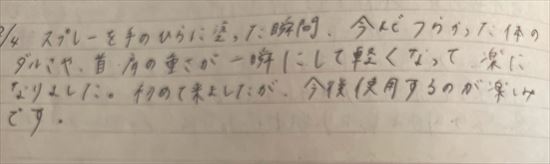 3/4 スプレーを手のひらに塗った瞬間、今までつらかった体の
ダルさや、首・肩の重さが一瞬にして軽くなって 楽に
なりました。初めて来ましたが、今後使用するのが楽しみ
です。